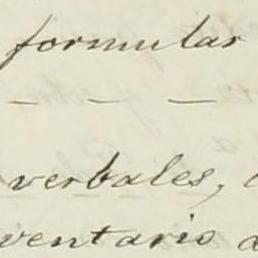 formular
— — —
verbales,
ventario